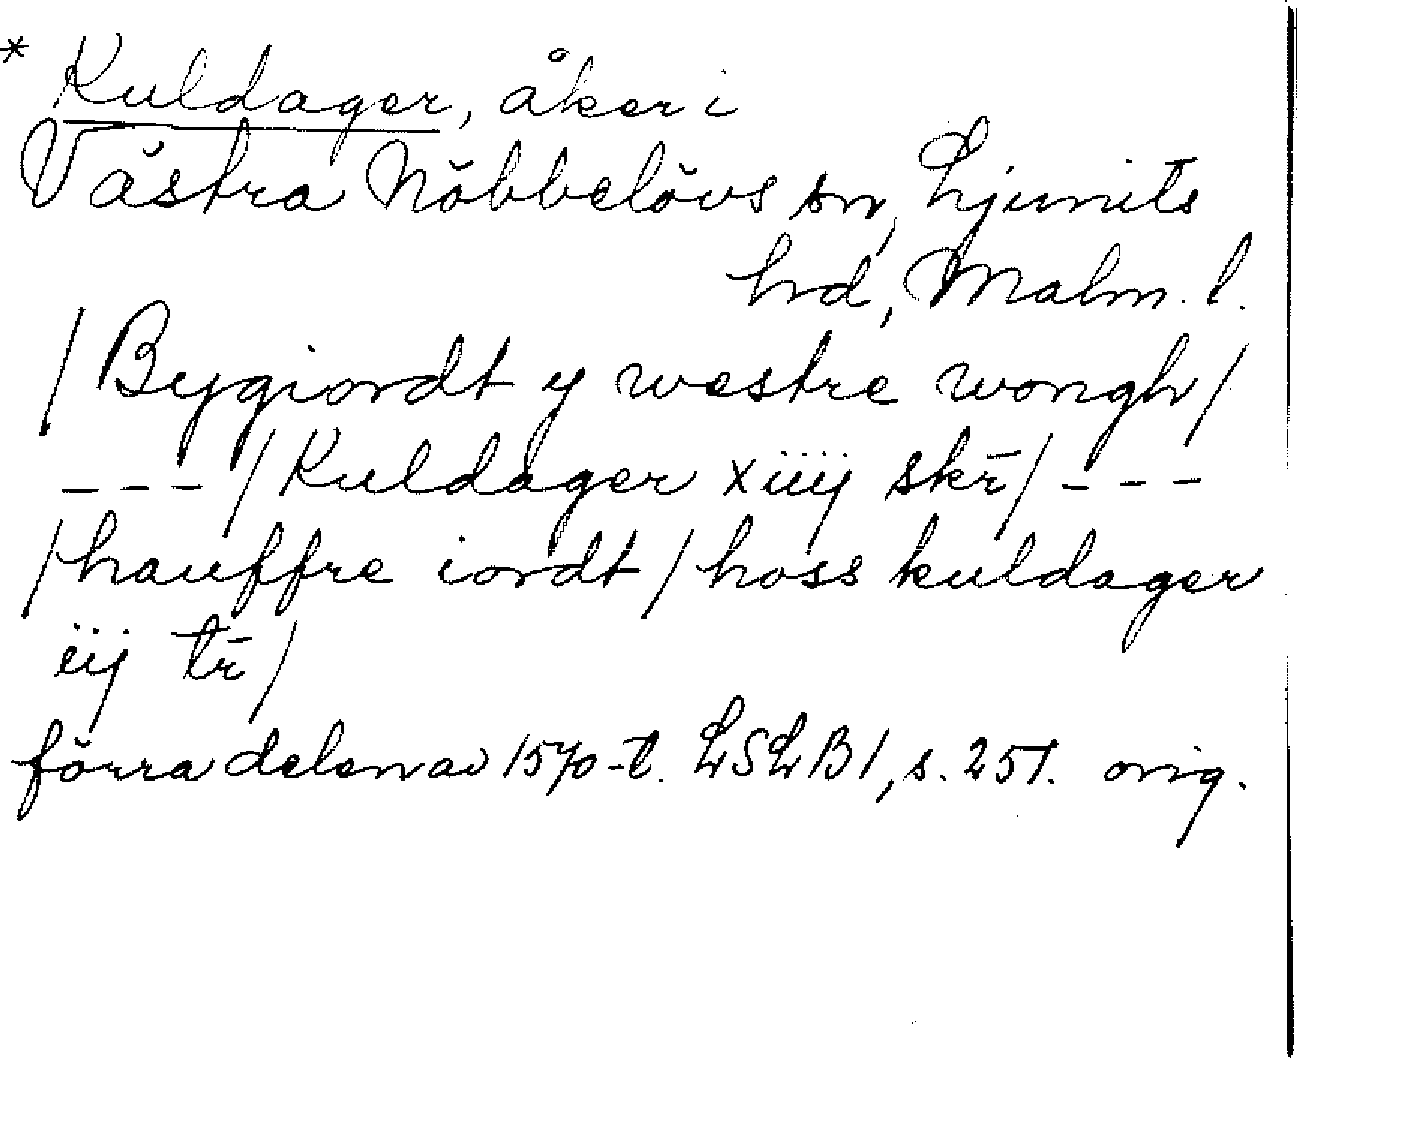 * Kuldager, åker i
Västra Nöbbelövs sn, Ljunits
hrd, Malm. l.
/ Bygiordt y westre wongh /
--- / Kuldager xiiij skr̄ / ---
/ hauffre iordt / hoss kuldager
iij tr̄ /
förra delen av 1570-t. LSLB1, s. 251. orig.